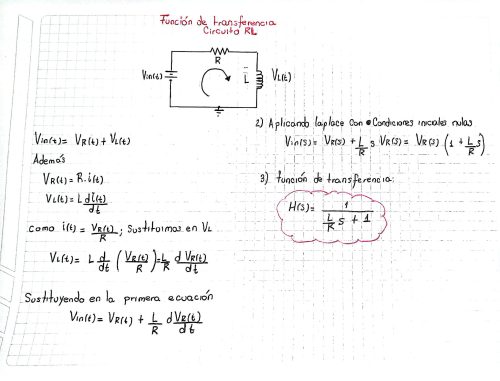 Función de transferencia
Circuito RL
R
Vin(t)
L
VL(t)
Vin(t) = VR(t) + VL(t)
Además
VR(t) = R.i(t)
VL(t) = L di(t)/dt
como i(t) = VR(t)/R ; Sustituimos en VL
VL(t) = L d/dt (VR(t)/R) = L/R dVR(t)/dt
Sustituyendo en la primera ecuación
Vin(t) = VR(t) + L/R dVR(t)/dt
2) Aplicando laplace con Condiciones iniciales nulas
Vin(s) = VR(s) + L/R s VR(s) = VR(s) (1 + L/R s)
3) función de transferencia:
H(s) = 1/(L/R s + 1)